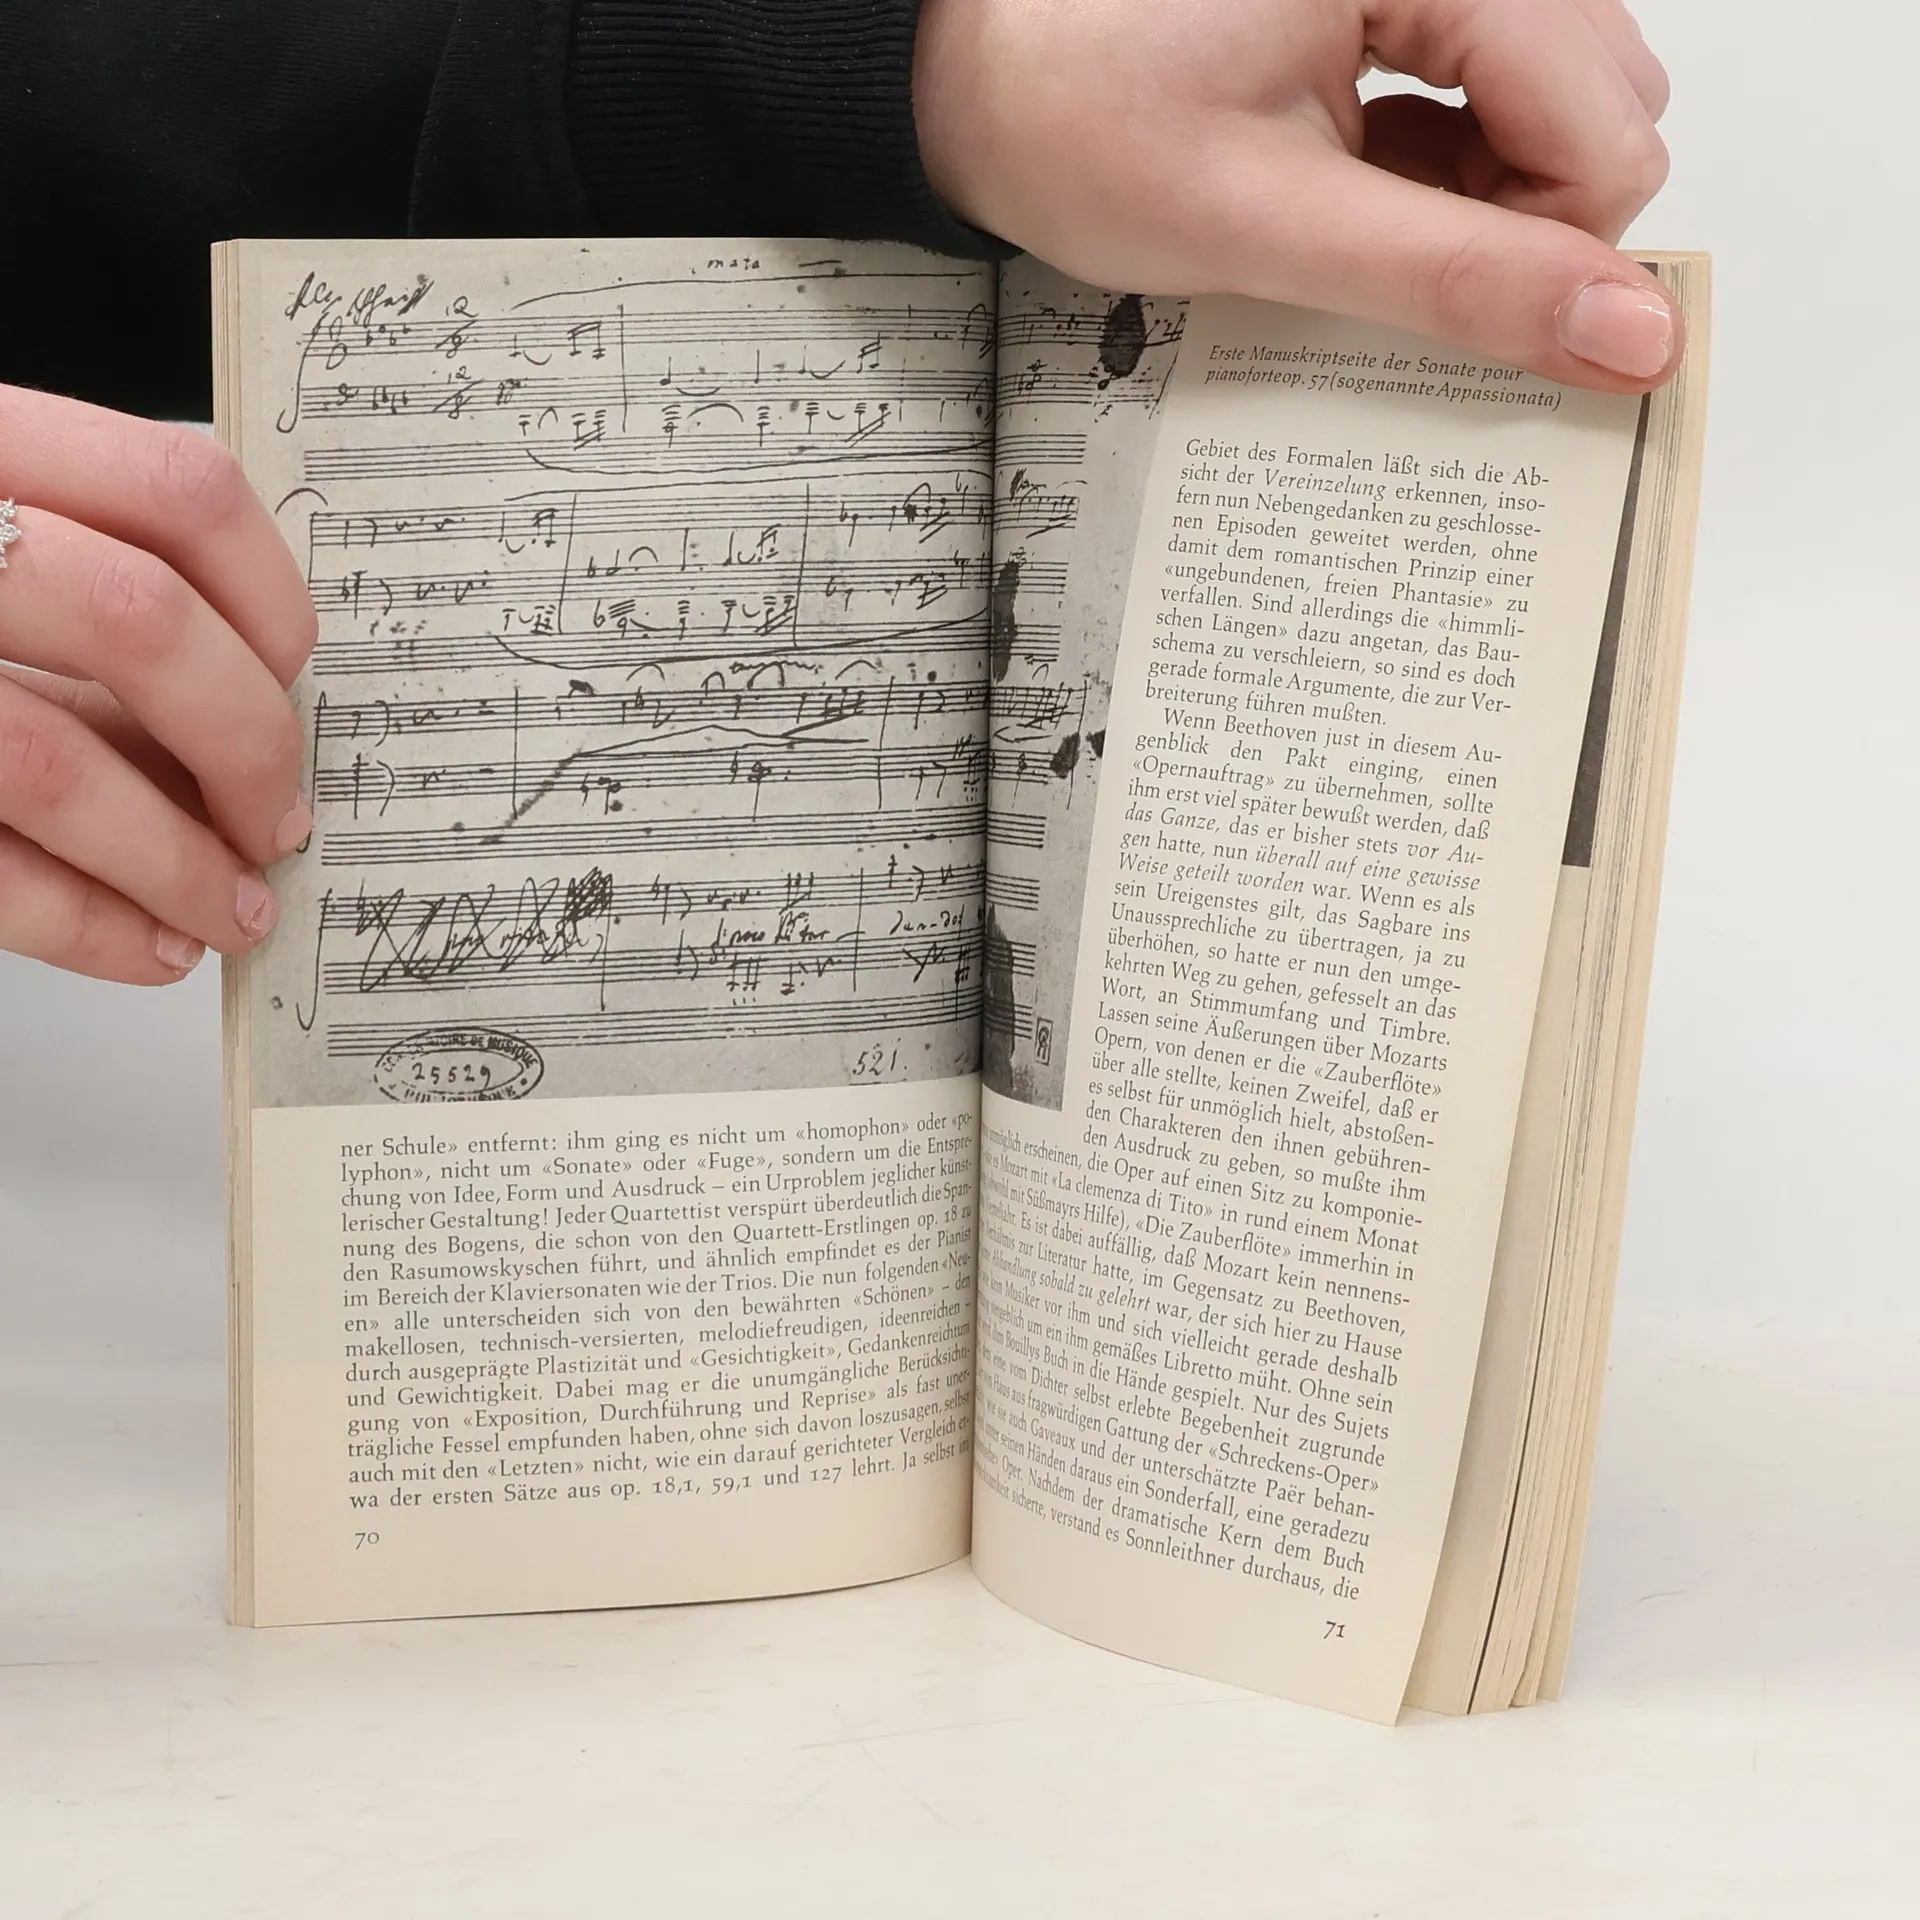 25529
521.
ner Schule» entfernt: ihm ging es nicht um «homophon» oder «po-
lyphon», nicht um «Sonate» oder «Fuge», sondern um die Entspre-
chung von Idee, Form und Ausdruck – ein Urproblem jeglicher künst-
lerischer Gestaltung! Jeder Quartettist verspürt überdeutlich die Span-
nung des Bogens, die schon von den Quartett-Erstlingen op. 18 zu
den Rasumowskyschen führt, und ähnlich empfindet es der Pianist
im Bereich der Klaviersonaten wie der Trios. Die nun folgenden «Neu-
en» alle unterscheiden sich von den bewährten «Schönen» – den
makellosen, technisch-versierten, melodiefreudigen, ideenreichen –
durch ausgeprägte Plastizität und «Gesichtigkeit», Gedankenreichtum
und Gewichtigkeit. Dabei mag er die unumgängliche Berücksichti-
gung von «Exposition, Durchführung und Reprise» als fast uner-
trägliche Fessel empfunden haben, ohne sich davon loszusagen, selbst
auch mit den «Letzten» nicht, wie ein darauf gerichteter Vergleich et-
wa der ersten Sätze aus op. 18,1, 59,1 und 127 lehrt. Ja selbst im
70
Erste Manuskriptseite der Sonate pour
pianoforte op. 57 (sogenannte Appassionata)
Gebiet des Formalen läßt sich die Ab-
sicht der Vereinzelung erkennen, inso-
fern nun Nebengedanken zu geschlosse-
nen Episoden geweitet werden, ohne
damit dem romantischen Prinzip einer
«ungebundenen, freien Phantasie» zu
verfallen. Sind allerdings die «himmli-
schen Längen» dazu angetan, das Bau-
schema zu verschleiern, so sind es doch
gerade formale Argumente, die zur Ver-
breiterung führen mußten.
Wenn Beethoven just in diesem Au-
genblick den Pakt einging, einen
«Opernauftrag» zu übernehmen, sollte
ihm erst viel später bewußt werden, daß
das Ganze, das er bisher stets vor Au-
gen hatte, nun überall auf eine gewisse
Weise geteilt worden war. Wenn es als
sein Ureigenstes gilt, das Sagbare ins
Unaussprechliche zu übertragen, ja zu
überhöhen, so hatte er nun den umge-
kehrten Weg zu gehen, gefesselt an das
Wort, an Stimmumfang und Timbre.
Lassen seine Äußerungen über Mozarts
Opern, von denen er die «Zauberflöte»
über alle stellte, keinen Zweifel, daß er
es selbst für unmöglich hielt, abstoßen-
den Charakteren den ihnen gebühren-
den Ausdruck zu geben, so mußte ihm
unmöglich erscheinen, die Oper auf einen Sitz zu komponie-
es Mozart mit «La clemenza di Tito» in rund einem Monat
mit Süßmayrs Hilfe), «Die Zauberflöte» immerhin in
Es ist dabei auffällig, daß Mozart kein nennens-
Verhältnis zur Literatur hatte, im Gegensatz zu Beethoven,
Abhandlung sobald zu gelehrt war, der sich hier zu Hause
wie kein Musiker vor ihm und sich vielleicht gerade deshalb
vergeblich um ein ihm gemäßes Libretto müht. Ohne sein
ihm Bouillys Buch in die Hände gespielt. Nur des Sujets
eine vom Dichter selbst erlebte Begebenheit zugrunde
von Haus aus fragwürdigen Gattung der «Schreckens-Oper»
wie sie auch Gaveaux und der unterschätzte Paër behan-
unter seinen Händen daraus ein Sonderfall, eine geradezu
Oper. Nachdem der dramatische Kern dem Buch
sicherte, verstand es Sonnleithner durchaus, die
71